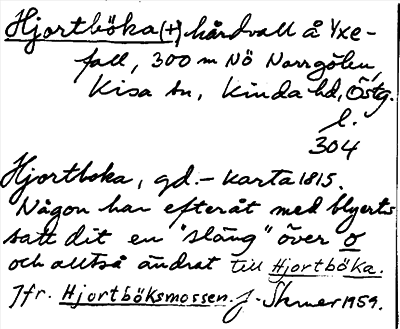 Hjortböka (+), hårdvall å Yxe-
fall, 300 m NÖ Norrgölen,
Kisa sn, Kinda hd, Östg.
l.
304
Hjortboka, gd. - karta 1815.
Någon har efteråt med blyerts
satt dit en "släng" över o
och alltså ändrat till Hjortböka.
Jfr. Hjortböksmossen. J. 1959.